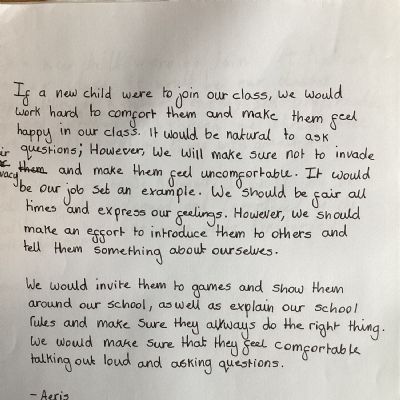 If a new child were to join our class, we would
work hard to comfort them and make them feel
happy in our class. It would be natural to ask
questions; However, we will make sure not to invade
them and make them feel uncomfortable. It would
be our job set an example. We should be fair all
times and express our feelings. However, we should
make an effort to introduce them to others and
tell them something about ourselves.
We would invite them to games and show them
around our school, aswell as explain our school
rules and make sure they always do the right thing.
We would make sure that they feel comfortable
talking out loud and asking questions.
- Aeris